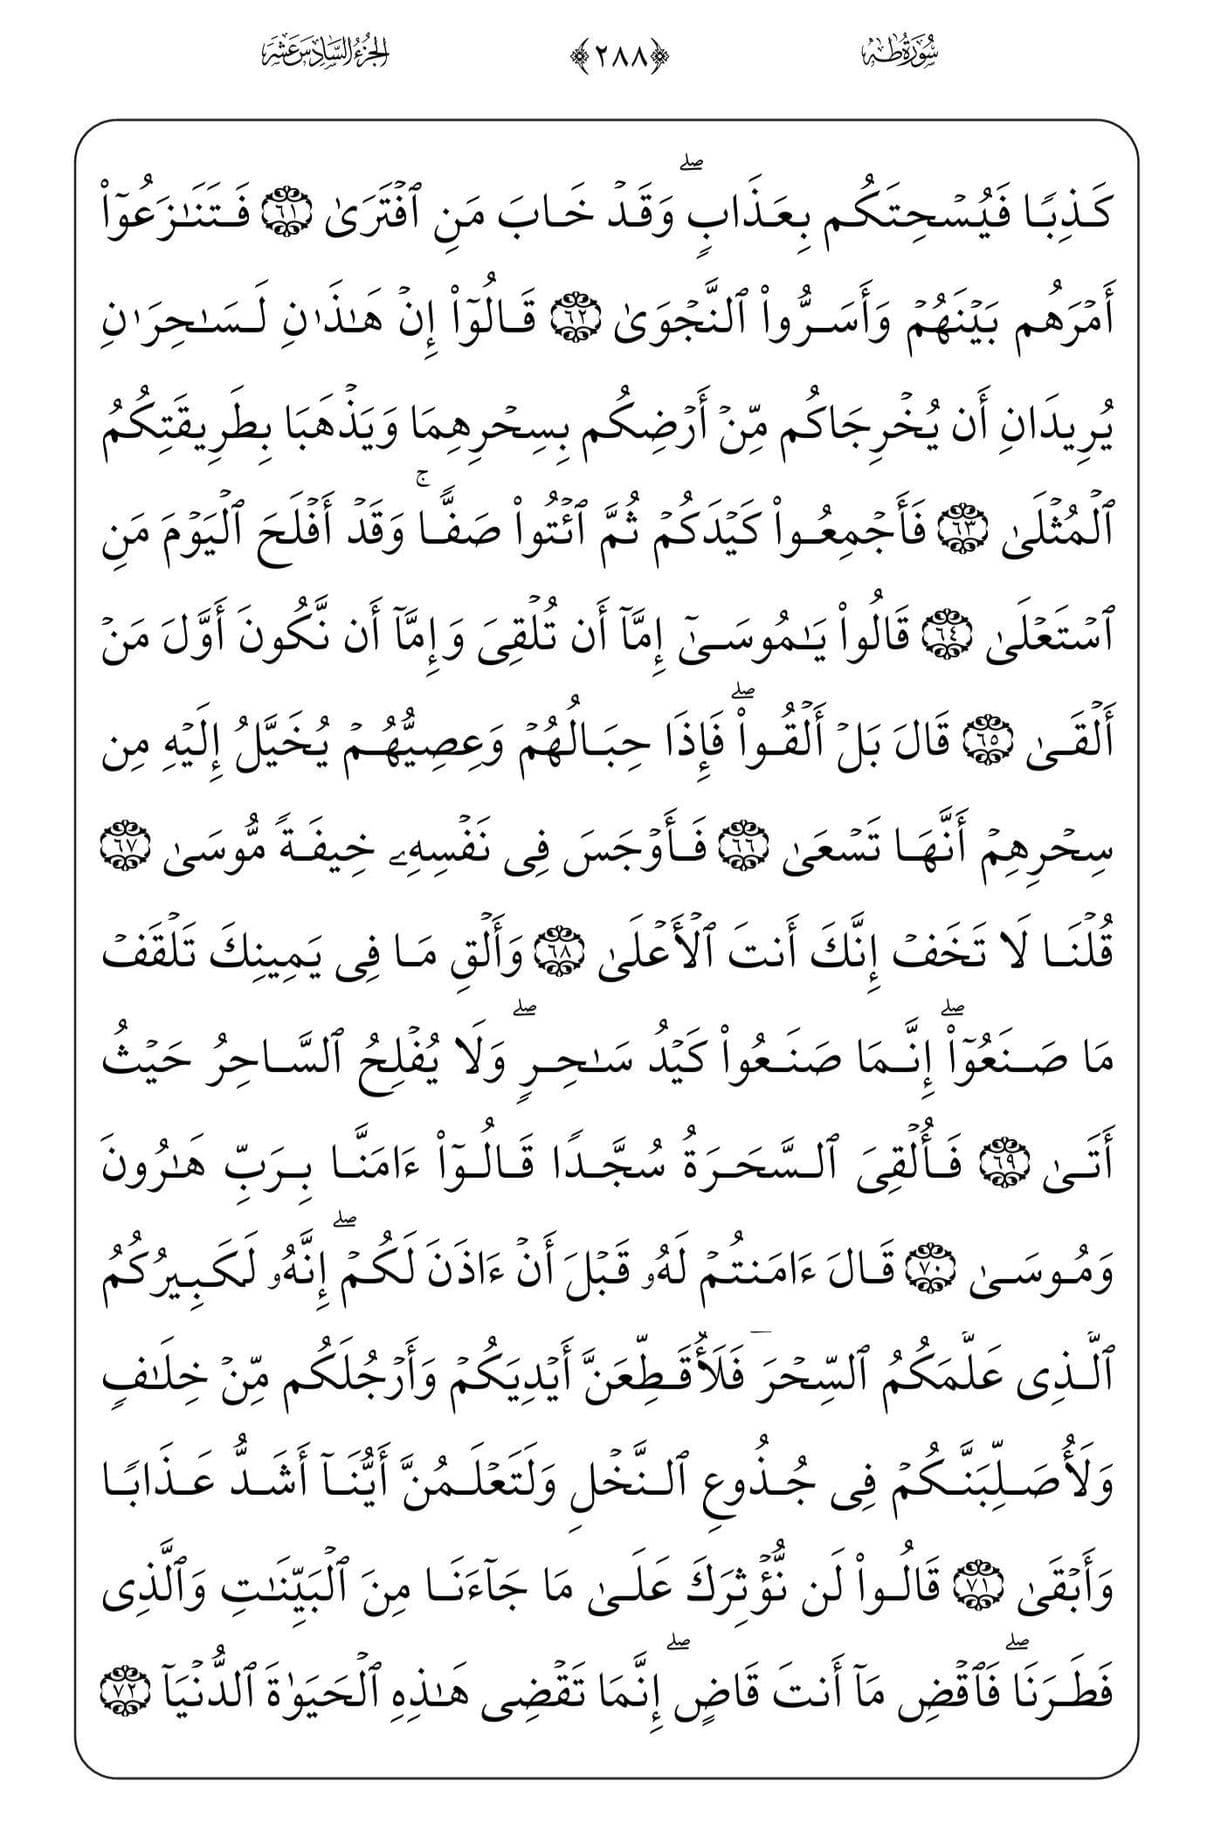 سُورَةُ طه ﴿٢٨٨﴾ الجُزْءُ السَّادِسَ عَشَرَ
كَذِبٗا فَيُسۡحِتَكُم بِعَذَابٖۖ وَقَدۡ خَابَ مَنِ ٱفۡتَرَىٰ ٦١ فَتَنَٰزَعُوٓاْ
أَمۡرَهُم بَيۡنَهُمۡ وَأَسَرُّواْ ٱلنَّجۡوَىٰ ٦٢ قَالُوٓاْ إِنۡ هَٰذَٰنِ لَسَٰحِرَٰنِ
يُرِيدَانِ أَن يُخۡرِجَاكُم مِّنۡ أَرۡضِكُم بِسِحۡرِهِمَا وَيَذۡهَبَا بِطَرِيقَتِكُمُ
ٱلۡمُثۡلَىٰ ٦٣ فَأَجۡمِعُواْ كَيۡدَكُمۡ ثُمَّ ٱئۡتُواْ صَفّٗاۚ وَقَدۡ أَفۡلَحَ ٱلۡيَوۡمَ مَنِ
ٱسۡتَعۡلَىٰ ٦٤ قَالُواْ يَٰمُوسَىٰٓ إِمَّآ أَن تُلۡقِيَ وَإِمَّآ أَن نَّكُونَ أَوَّلَ مَنۡ
أَلۡقَىٰ ٦٥ قَالَ بَلۡ أَلۡقُواْۖ فَإِذَا حِبَالُهُمۡ وَعِصِيُّهُمۡ يُخَيَّلُ إِلَيۡهِ مِن
سِحۡرِهِمۡ أَنَّهَا تَسۡعَىٰ ٦٦ فَأَوۡجَسَ فِي نَفۡسِهِۦ خِيفَةٗ مُّوسَىٰ ٦٧
قُلۡنَا لَا تَخَفۡ إِنَّكَ أَنتَ ٱلۡأَعۡلَىٰ ٦٨ وَأَلۡقِ مَا فِي يَمِينِكَ تَلۡقَفۡ
مَا صَنَعُوٓاْۖ إِنَّمَا صَنَعُواْ كَيۡدُ سَٰحِرٖۖ وَلَا يُفۡلِحُ ٱلسَّاحِرُ حَيۡثُ
أَتَىٰ ٦٩ فَأُلۡقِيَ ٱلسَّحَرَةُ سُجَّدٗا قَالُوٓاْ ءَامَنَّا بِرَبِّ هَٰرُونَ
وَمُوسَىٰ ٧٠ قَالَ ءَامَنتُمۡ لَهُۥ قَبۡلَ أَنۡ ءَاذَنَ لَكُمۡۖ إِنَّهُۥ لَكَبِيرُكُمُ
ٱلَّذِي عَلَّمَكُمُ ٱلسِّحۡرَۖ فَلَأُقَطِّعَنَّ أَيۡدِيَكُمۡ وَأَرۡجُلَكُم مِّنۡ خِلَٰفٖ
وَلَأُصَلِّبَنَّكُمۡ فِي جُذُوعِ ٱلنَّخۡلِ وَلَتَعۡلَمُنَّ أَيُّنَآ أَشَدُّ عَذَابٗا
وَأَبۡقَىٰ ٧١ قَالُواْ لَن نُّؤۡثِرَكَ عَلَىٰ مَا جَآءَنَا مِنَ ٱلۡبَيِّنَٰتِ وَٱلَّذِي
فَطَرَنَاۖ فَٱقۡضِ مَآ أَنتَ قَاضٍۖ إِنَّمَا تَقۡضِي هَٰذِهِ ٱلۡحَيَوٰةَ ٱلدُّنۡيَآ ٧٢